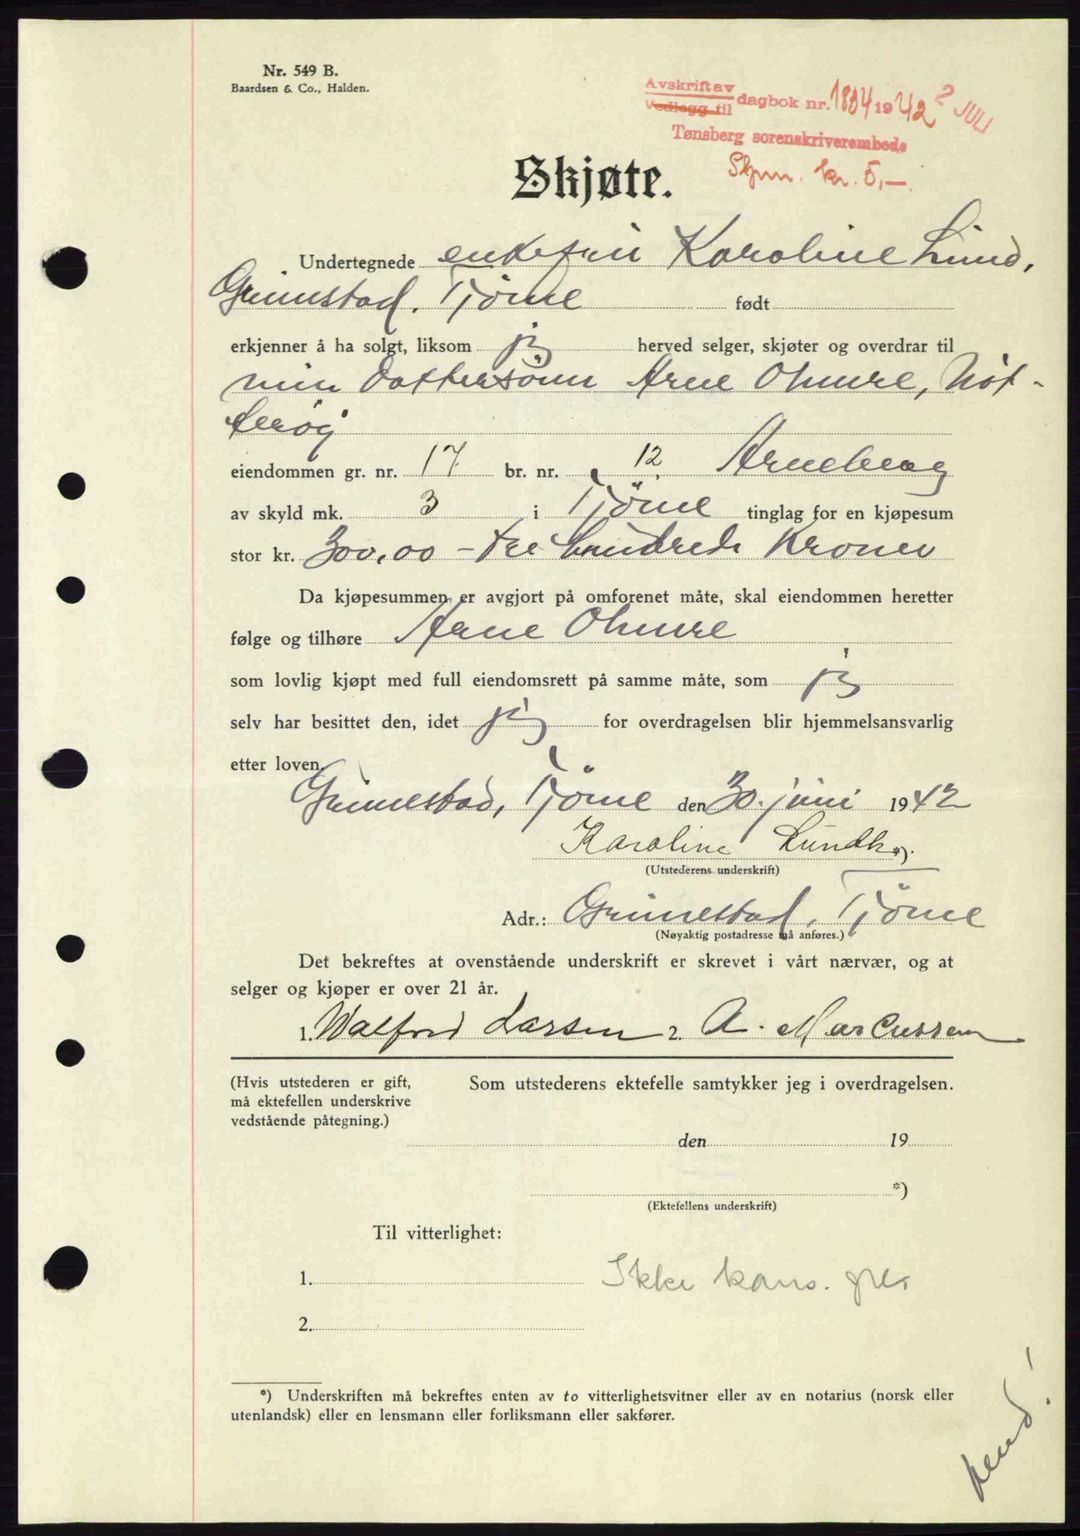 Nr. 549 B.
Baardsen & Co., Halden.
Avskrift av
Vedlegg til
dagbok nr. 1804 1942 2 JULI
Tønsberg sorenskriverembede
Stpm. kr. 5,-.
Skjøte.
Undertegnede enkefru Karoline Lund,
Grimestad, Tjøme født
erkjenner å ha solgt, liksom jeg herved selger, skjøter og overdrar til
min Dattersønn Arne Ohmre, Nøt-
terøy
eiendommen gr. nr. 17 br. nr. 12 Arneberg
av skyld mk. 3 i Tjöme tinglag for en kjøpesum
stor kr. 300,00 - tre hundrede Kroner
Da kjøpesummen er avgjort på omforenet måte, skal eiendommen heretter
følge og tilhøre Arne Ohmre
som lovlig kjøpt med full eiendomsrett på samme måte, som jeg
selv har besittet den, idet jeg for overdragelsen blir hjemmelsansvarlig
etter loven.
Grimestad, Tjöme den 30. juni 1942
Karoline Lund *)
(Utstederens underskrift)
Adr.: Grimestad, Tjöme
(Nøyaktig postadresse må anføres.)
Det bekreftes at ovenstående underskrift er skrevet i vårt nærvær, og at
selger og kjøper er over 21 år.
1. Walfred Larsen 2. A. Marcussen
(Hvis utstederen er gift,
må ektefellen underskrive
vedstående påtegning.)
Som utstederens ektefelle samtykker jeg i overdragelsen.
den 19
*)
(Ektefellens underskrift)
Til vitterlighet:
1.
Ikke kons. pl.
2.
*) Underskriften må bekreftes enten av to vitterlighetsvitner eller av en notarius (norsk eller
utenlandsk) eller en lensmann eller forliksmann eller sakfører.